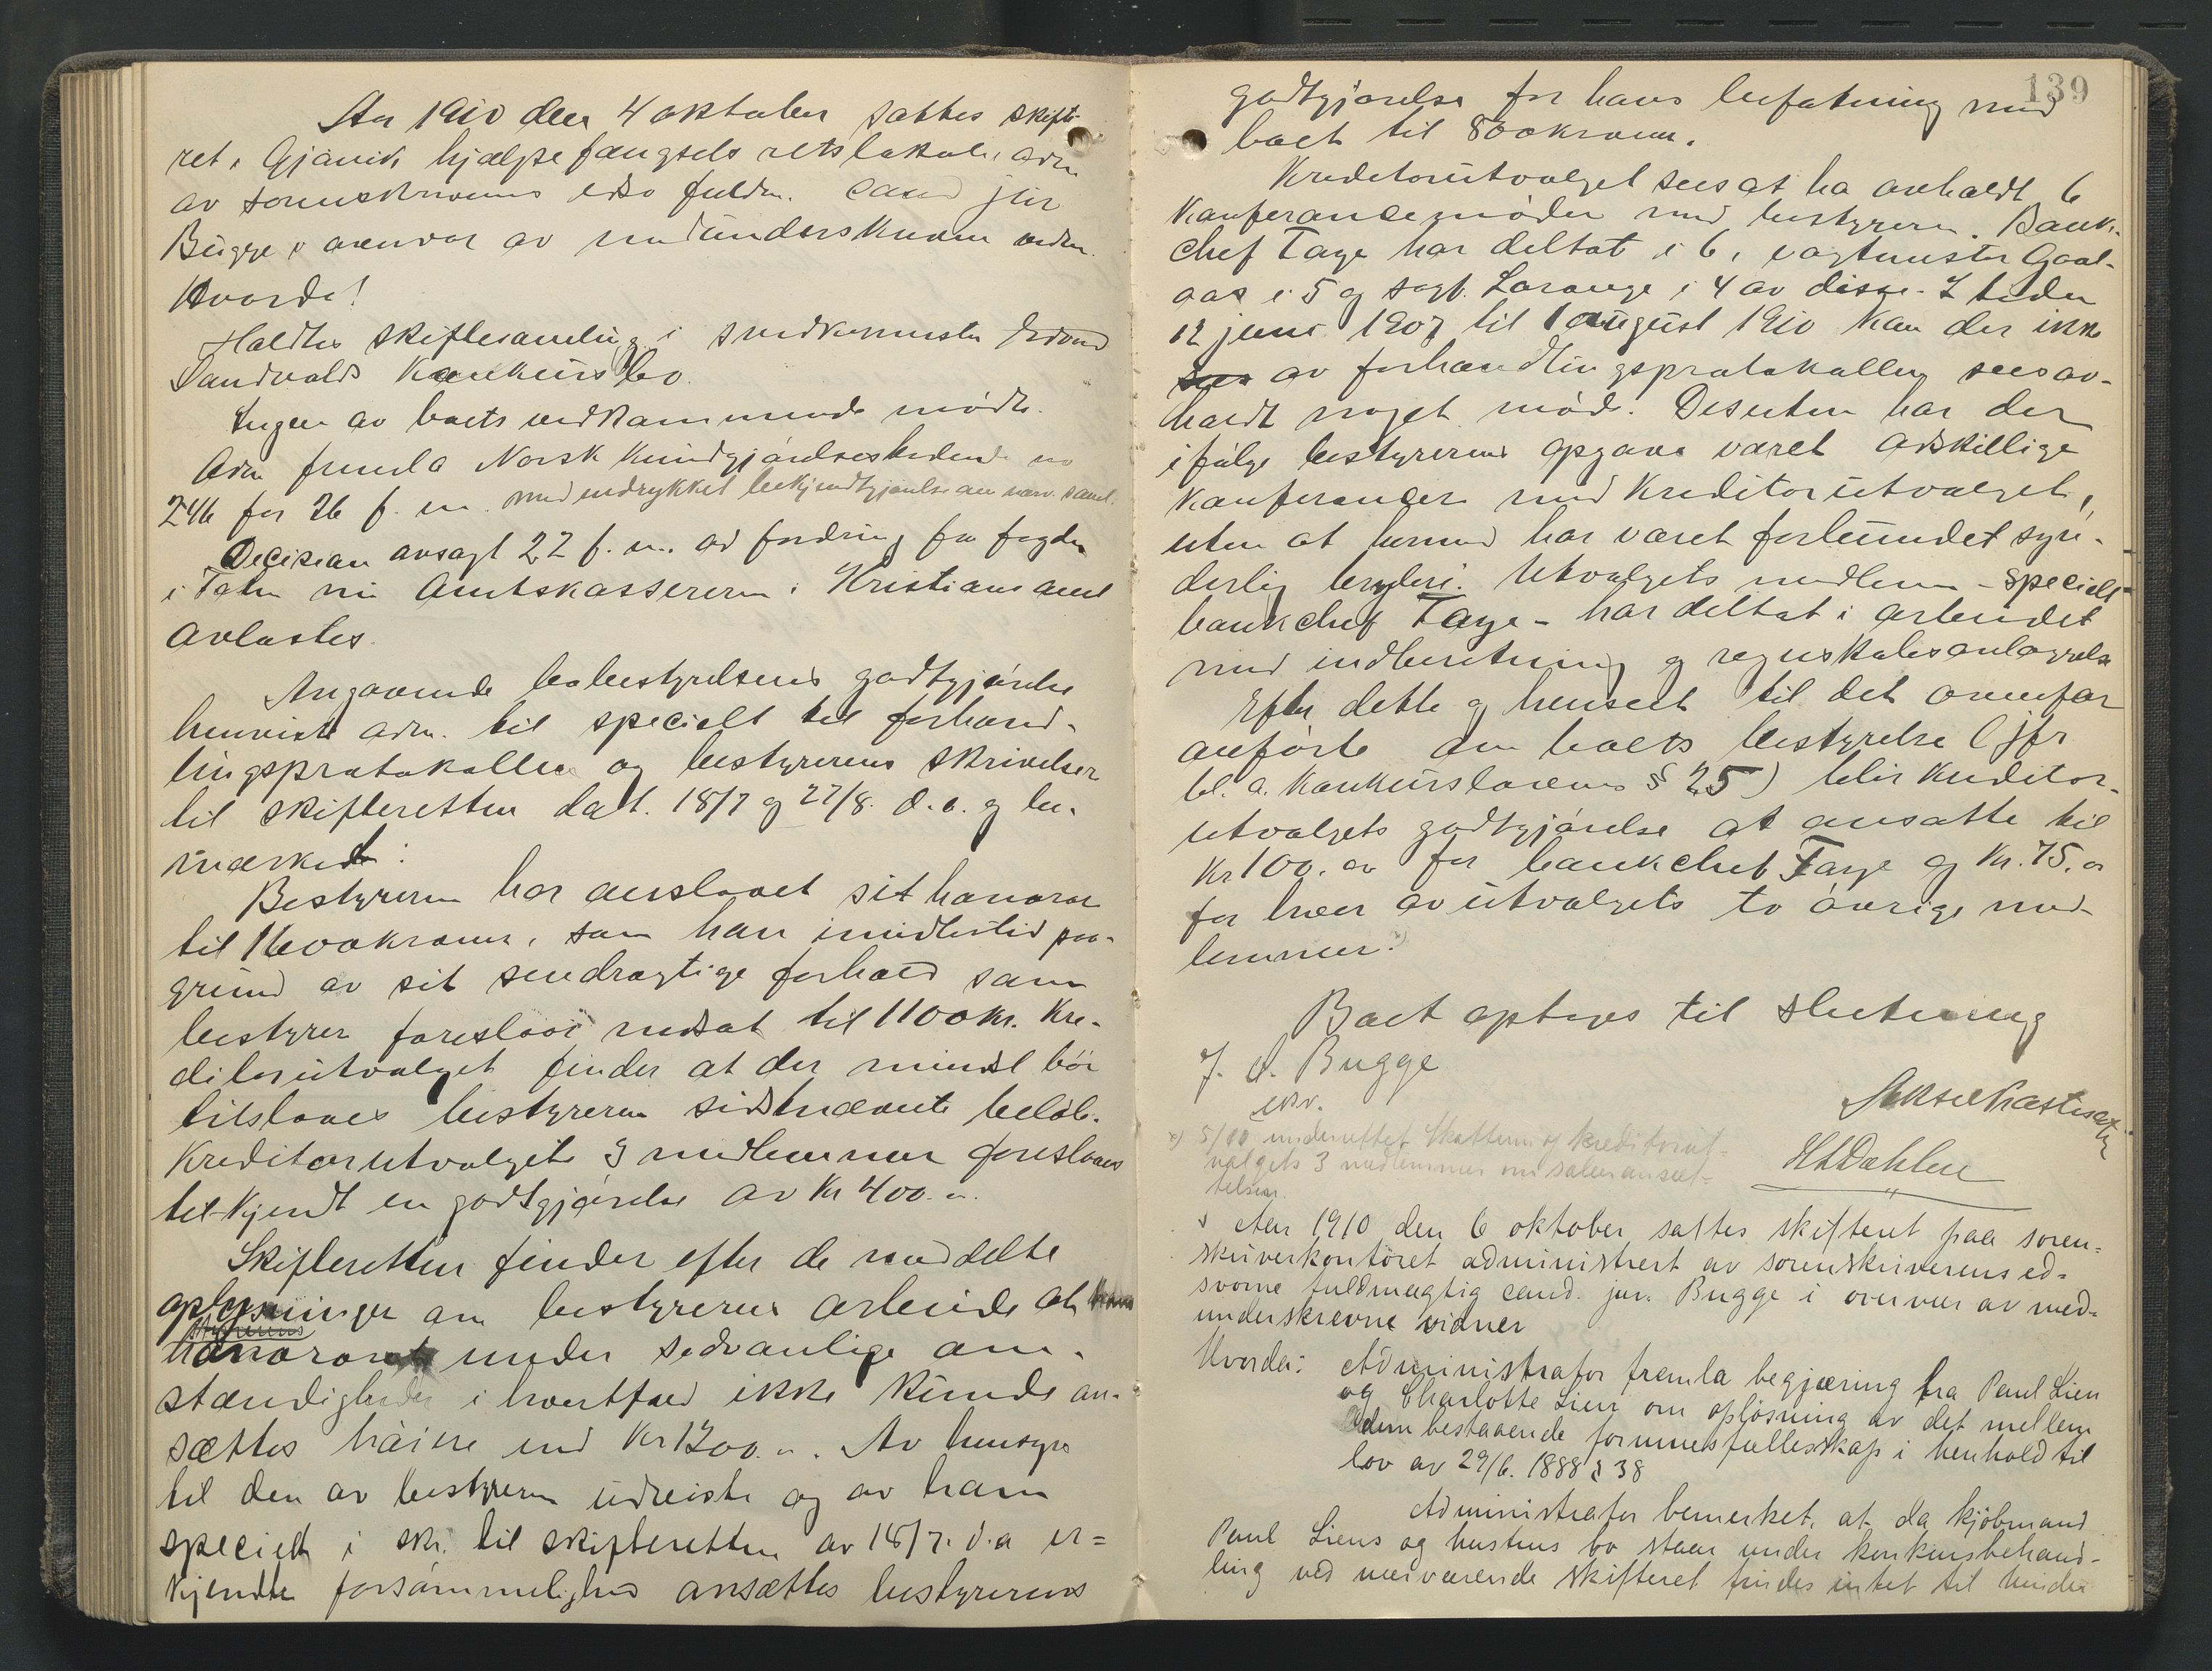 Aar 1910 den 4 oktober sattes skifte-
ret i Gjøvik hjælpefængsels retslokale, adm
av sorenskriverens edsv fuldm. cand jur
Bugge i overvær av medunderskrevne vidner.
Hvorda!
Holdtes skiftesamling i snedkermester Edvard
Sandvolds konkursbo.
Ingen av boets vedkommende mødte.
Adm fremla Norsk Kundgjørelsestidende no
246 for 26 f. m. med indrykket bekjendtgjørelse om nærv. saml.
Decision avsagt 22 f. m. ad fordring fra fogden
i Toten nu Amtskassereren i Kristians amt
avlæstes.
Angaaende bobestyrelsens godtgjørelse
henviste adm. til specielt til forhand-
lingsprotokollen og bestyrerens skrivelser
til skifteretten dat. 18/7 og 27/8. d. a. og be-
mærket:
Bestyreren har anslaaet sit honorar
til 1600 kroner, som han imidlertid paa-
grund av sit sendrægtige forhold som
bestyrer foreslaar nedsat til 1100 kr. Kre-
ditorutvalget finder at der mindst bør
tilstaaes bestyreren sidstnævnte beløb.
Kreditorutvalgets 3 medlemmer foreslaaes
tilkjendt en godtgjørelse av Kr 400. -
Skifteretten finder efter de meddelte
oplysninger om bestyrerens arbeide at
styrerens
honoraret under sedvanlige om-
stændigheder i hvertfald ikke kunde an-
sættes høiere end Kr 1200. -. Av hensyn
til den av bestyreren utviste og av ham
specielt i skr. til skifteretten av 18/7. d. a er=
kjendte forsømmelighed ansættes bestyrerens
139
godtgjørelse for hans befatning med
boet til 800 kroner.
Kreditorutvalget sees at ha avholdt 6
konferancemøder med bestyreren. Bank-
chef Tage har deltat i 6, vagtmester Gaal-
aas i 5 og sagf. Lorange i 4 av disse. I tiden
12 juni 1907 til 1 august 1910 kan der ikke
sees av forhandlingsprotokollen sees av-
holdt noget møde. Desuten har der
ifølge bestyrerens opgave været adskillige
konferancer med kreditorutvalget,
uten at hermed har været forbundet syn-
derlig bryderi. Utvalgets medlem - specielt
bankchef Tage - har deltat i arbeidet
med indberetning og regnskabsavlæggelse
Efter dette og henseet til det ovenfor
anførte om boets bestyrelse (jfr
bl. a. konkurslovens § 25) blir kreditor-
utvalgets godtgjørelse at ansætte til
Kr 100. oo for bankchef Tage og Kr. 75. oo
for hver av utvalgets to øvrige med-
lemmer. x)
Boet optages til slutning
J. A. Bugge
edsv.
H L Dahlen
x) 5/10 underrettet Skattum og kreditorut-
valgets 3 medlemmer om salæransæt-
telsen.
Aar 1910 den 6 oktober sattes skifteret paa soren=
skriverkontoret administrert av sorenskriverens ed=
svorne fuldmægtig cand. jur. Bugge i overvær av med=
underskrevne vidner
Hvorda: Administrator fremla begjæring fra Paul Lien
og Charlotte Lien om opløsning av det mellem
dem bestaaende formuesfællesskap i henhold til
lov av 29/6. 1888 § 38
Administrator bemerket, at da kjøbmand
Paul Liens og hustrus bo staar under konkursbehand-
ling ved nærværende skifteret findes intet til hinder